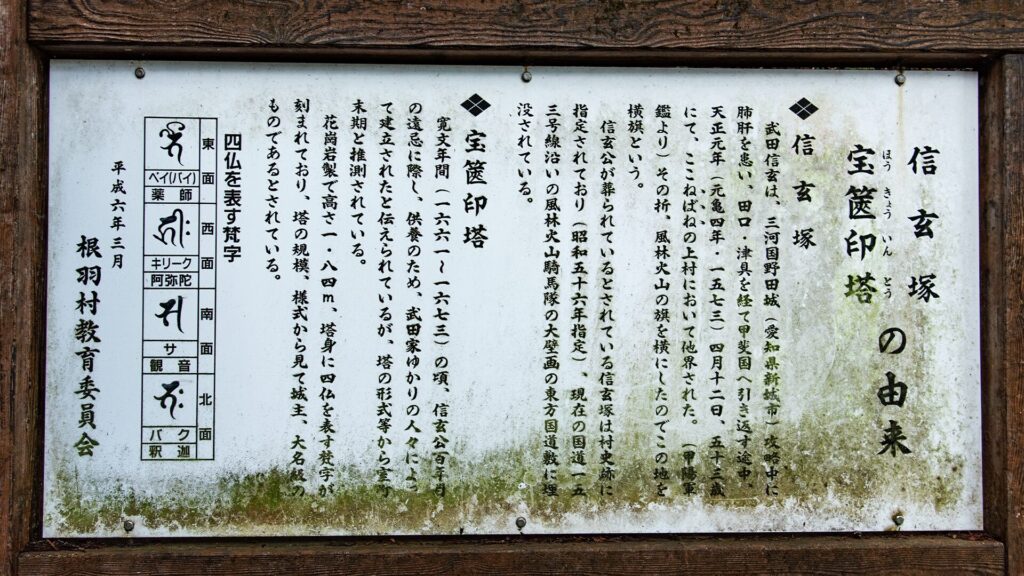 信玄塚
宝篋印塔
ほうきょういんとう
の由来
信玄塚
武田信玄は、三河国野田城(愛知県新城市)攻略中に
肺肝を患い、田口・津具を経て甲斐国へ引き返す途中、
天正元年(元亀四年・一五七三)四月十二日、五十三歳
にて、ここねばねの上村において他界された。(甲陽軍
鑑より)その折、風林火山の旗を横にしたのでこの地を
横旗という。
信玄公が葬られているとされている信玄塚は村史跡に
指定されており(昭和五十六年指定)、現在の国道一五
三号線沿いの風林火山騎馬隊の大壁画の東方国道敷に埋
没されている。
宝篋印塔
寛文年間(一六六一〜一六七三)の頃、信玄公百年月
の遠忌に際し、供養のため、武田家ゆかりの人々によっ
て建立されたと伝えられているが、塔の形式等から室町
末期と推測されている。
花崗岩製で高さ一・八四m、塔身に四仏を表す梵字が
刻まれており、塔の規模、様式から見て城主、大名級の
ものであるとされている。
四仏を表す梵字
東面
ベイ(バイ)
薬師
西面
キリーク
阿弥陀
南面
サ
観音
北面
バク
釈迦
平成六年三月
根羽村教育委員会